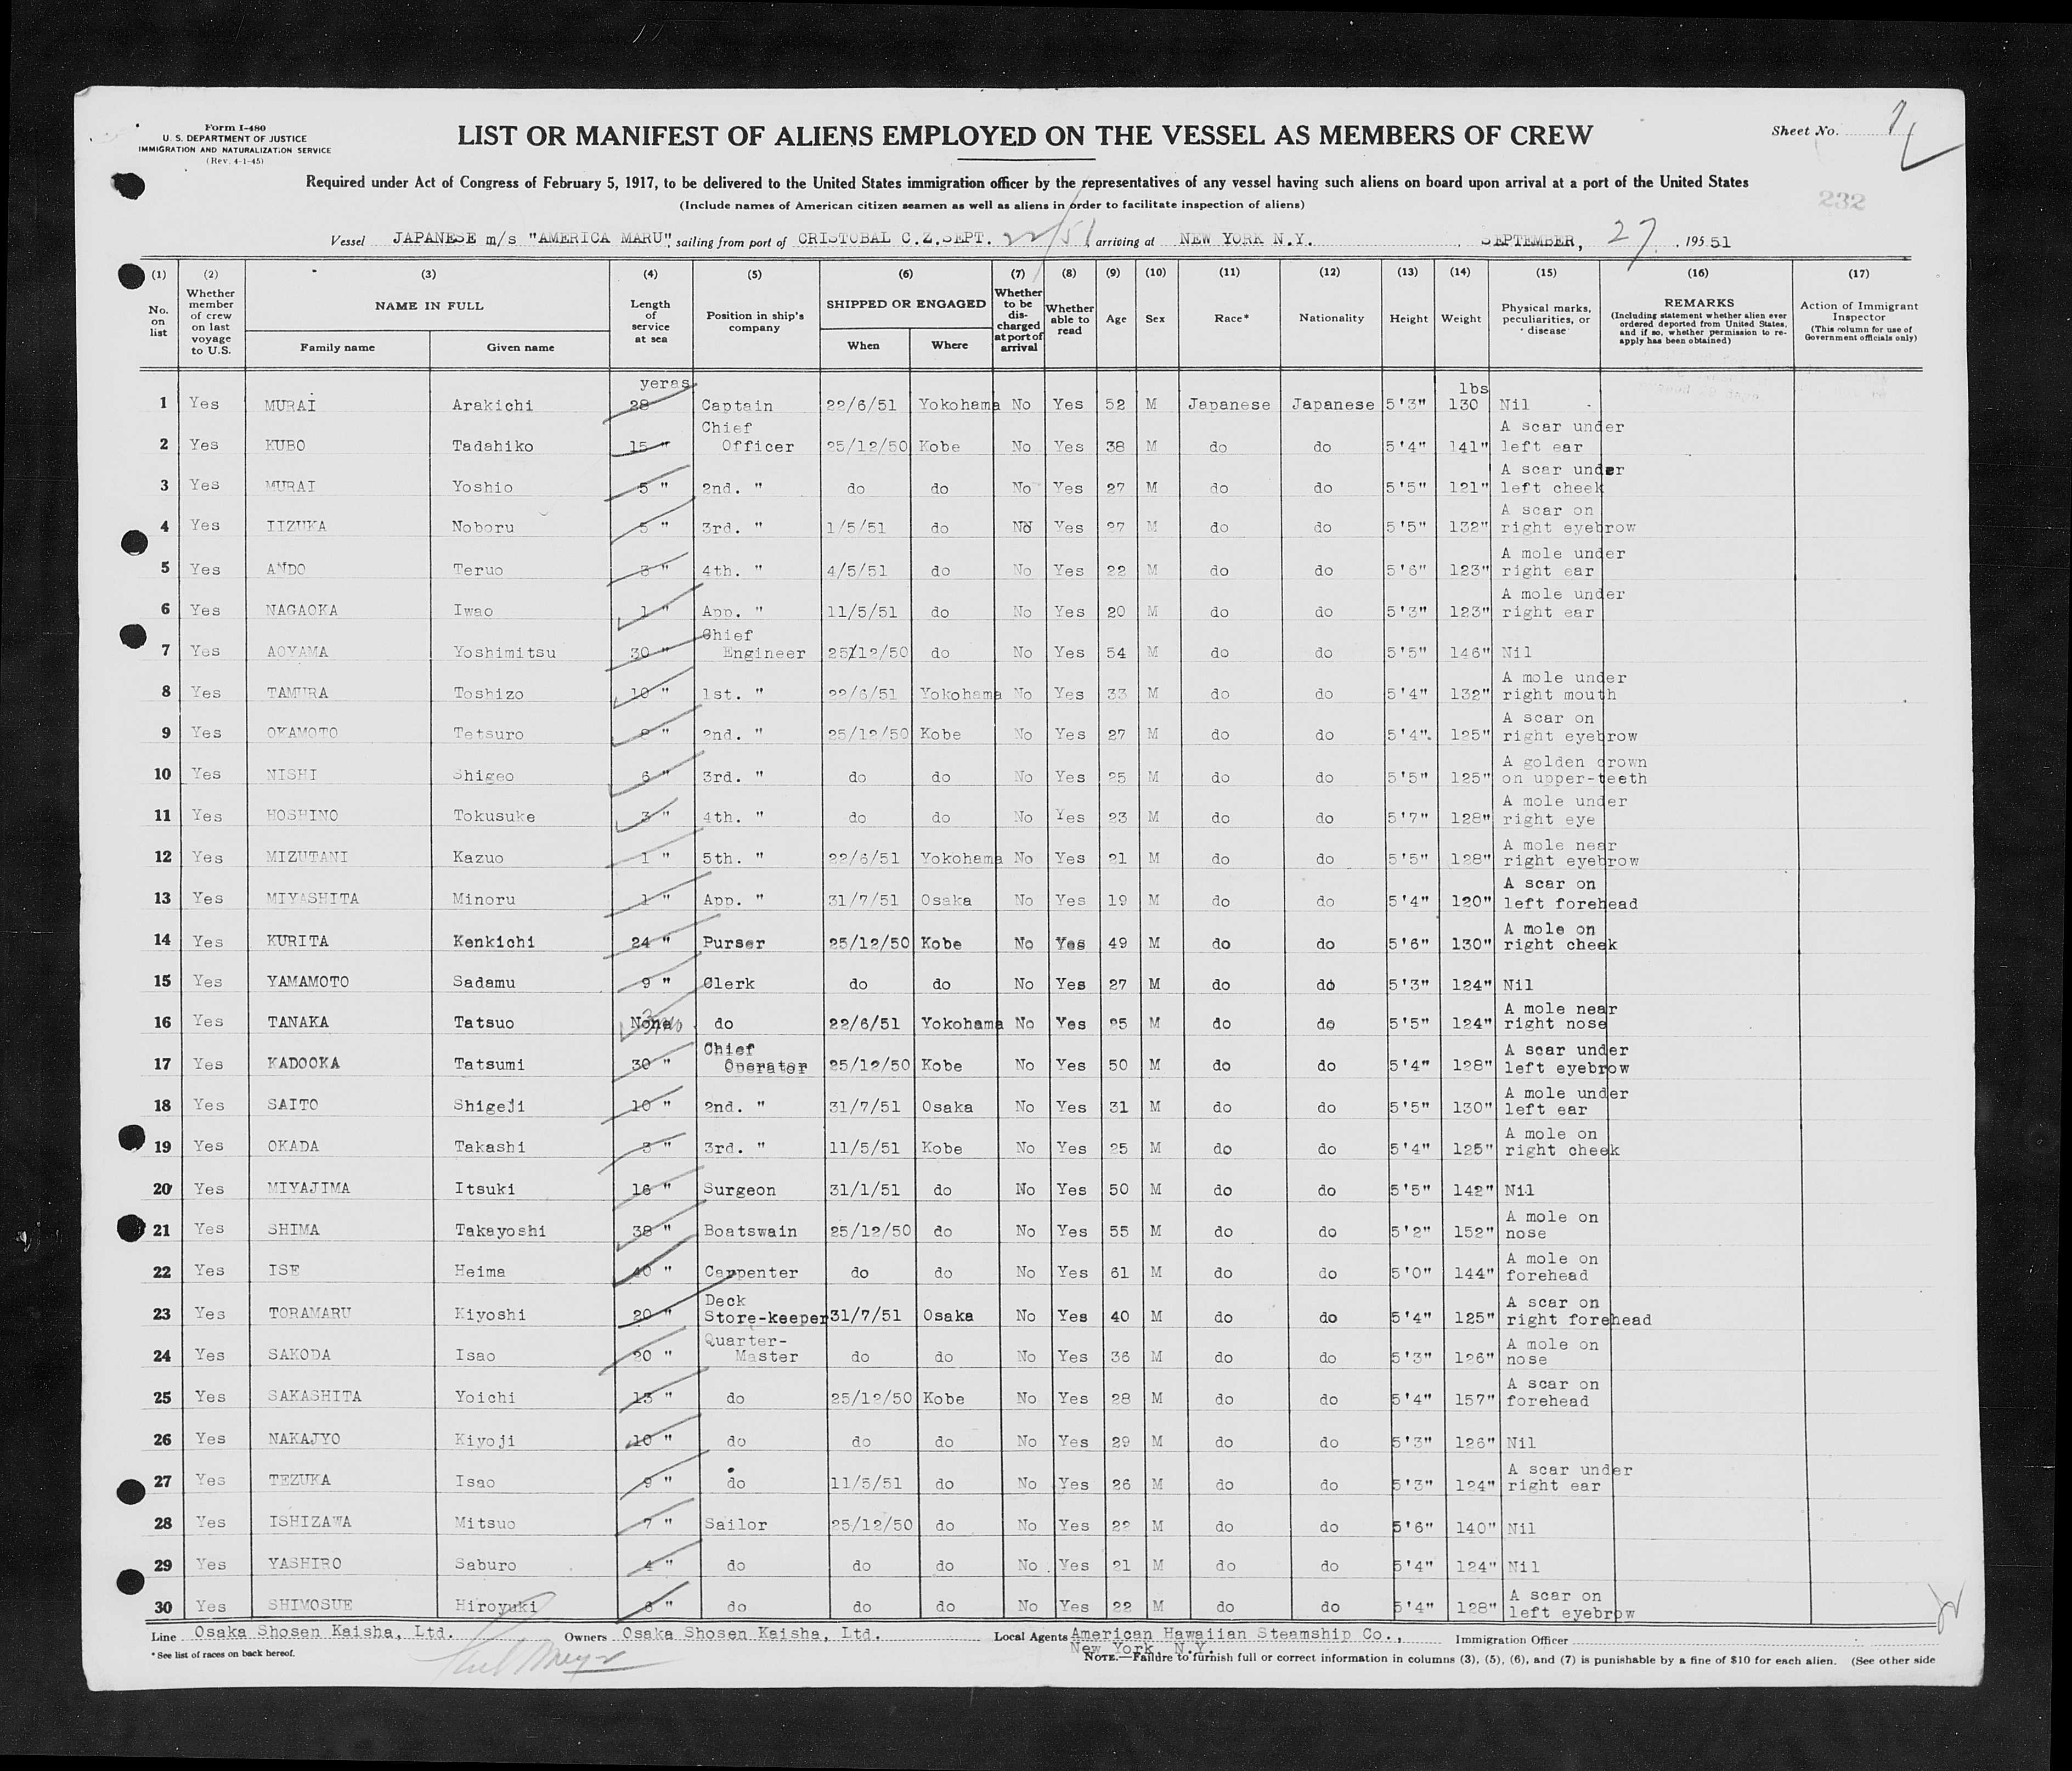 Form I-480
U. S. DEPARTMENT OF JUSTICE
IMMIGRATION AND NATURALIZATION SERVICE
(Rev. 4-1-45)
LIST OR MANIFEST OF ALIENS EMPLOYED ON THE VESSEL AS MEMBERS OF CREW
Sheet No. 1
Required under Act of Congress of February 5, 1917, to be delivered to the United States immigration officer by the representatives of any vessel having such aliens on board upon arrival at a port of the United States
(Include names of American citizen seamen as well as aliens in order to facilitate inspection of aliens)
232
Vessel JAPANESE m/s "AMERICA MARU", sailing from port of CRISTOBAL C.Z. SEPT. 22/51 arriving at NEW YORK N.Y. SEPTEMBER, 27, 195 51
(1) (2) (3) (4) (5) (6) (7) (8) (9) (10) (11) (12) (13) (14) (15) (16) (17)
No. on list
Whether member of crew on last voyage to U.S.
NAME IN FULL
Family name Given name
Length of service at sea
Position in ship's company
SHIPPED OR ENGAGED
When Where
Whether to be discharged at port of arrival
Whether able to read
Age Sex Race* Nationality Height Weight
Physical marks, peculiarities, or disease
REMARKS
(Including statement whether alien ever ordered deported from United States, and if so, whether permission to re-apply has been obtained)
Action of Immigrant Inspector
(This column for use of Government officials only)
yeras lbs
1 Yes MURAI Arakichi 28 Captain 22/6/51 Yokohama No Yes 52 M Japanese Japanese 5'3" 130 Nil
2 Yes KUBO Tadahiko 15 " Chief Officer 25/12/50 Kobe No Yes 38 M do do 5'4" 141" A scar under left ear
3 Yes MURAI Yoshio 5 " 2nd. " do do No Yes 27 M do do 5'5" 121" A scar under left cheek
4 Yes IIZUKA Noboru 5 " 3rd. " 1/5/51 do No Yes 27 M do do 5'5" 132" A scar on right eyebrow
5 Yes ANDO Teruo 3 " 4th. " 4/5/51 do No Yes 22 M do do 5'6" 123" A mole under right ear
6 Yes NAGAOKA Iwao 1 " App. " 11/5/51 do No Yes 20 M do do 5'3" 123" A mole under right ear
7 Yes AOYAMA Yoshimitsu 30 " Chief Engineer 25/12/50 do No Yes 54 M do do 5'5" 146" Nil
8 Yes TAMURA Toshizo 10 " 1st. " 22/6/51 Yokohama No Yes 33 M do do 5'4" 132" A mole under right mouth
9 Yes OKAMOTO Tetsuro " 2nd. " 25/12/50 Kobe No Yes 27 M do do 5'4". 125" A scar on right eyebrow
10 Yes NISHI Shigeo 6 " 3rd. " do do No Yes 25 M do do 5'5" 125" A golden crown on upper-teeth
11 Yes HOSHINO Tokusuke 3 " 4th. " do do No Yes 23 M do do 5'7" 128" A mole under right eye
12 Yes MIZUTANI Kazuo 1 " 5th. " 22/6/51 Yokohama No Yes 21 M do do 5'5" 128" A mole near right eyebrow
13 Yes MIYASHITA Minoru 1 " App. " 31/7/51 Osaka No Yes 19 M do do 5'4" 120" A scar on left forehead
14 Yes KURITA Kenkichi 24 " Purser 25/12/50 Kobe No Yes 49 M do do 5'6" 130" A mole on right cheek
15 Yes YAMAMOTO Sadamu 9 " Clerk do do No Yes 27 M do do 5'3" 124" Nil
16 Yes TANAKA Tatsuo None do 22/6/51 Yokohama No Yes 25 M do do 5'5" 124" A mole near right nose
17 Yes KADOOKA Tatsumi 30 " Chief Operator 25/12/50 Kobe No Yes 50 M do do 5'4" 128" A scar under left eyebrow
18 Yes SAITO Shigeji 10 " 2nd. " 31/7/51 Osaka No Yes 31 M do do 5'5" 130" A mole under left ear
19 Yes OKADA Takashi 3 " 3rd. " 11/5/51 Kobe No Yes 25 M do do 5'4" 125" A mole on right cheek
20 Yes MIYAJIMA Itsuki 16 " Surgeon 31/1/51 do No Yes 50 M do do 5'5" 142" Nil
21 Yes SHIMA Takayoshi 38 " Boatswain 25/12/50 do No Yes 55 M do do 5'2" 152" A mole on nose
22 Yes ISE Heima 40 " Carpenter do do No Yes 61 M do do 5'0" 144" A mole on forehead
23 Yes TORAMARU Kiyoshi 20 " Deck Store-keeper 31/7/51 Osaka No Yes 40 M do do 5'4" 125" A scar on right forehead
24 Yes SAKODA Isao 20 " Quarter-Master do do No Yes 36 M do do 5'3" 126" A mole on nose
25 Yes SAKASHITA Yoichi 13 " do 25/12/50 Kobe No Yes 28 M do do 5'4" 157" A scar on forehead
26 Yes NAKAJYO Kiyoji 10 " do do do No Yes 29 M do do 5'3" 126" Nil
27 Yes TEZUKA Isao 9 " do 11/5/51 do No Yes 26 M do do 5'3" 124" A scar under right ear
28 Yes ISHIZAWA Mitsuo 7 " Sailor 25/12/50 do No Yes 22 M do do 5'6" 140" Nil
29 Yes YASHIRO Saburo 4 " do do do No Yes 21 M do do 5'4" 124" Nil
30 Yes SHIMOSUE Hiroyuki " do do do No Yes 22 M do do 5'4" 128" A scar on left eyebrow
Line Osaka Shosen Kaisha, Ltd. Owners Osaka Shosen Kaisha, Ltd. Local Agents American Hawaiian Steamship Co., New York N.Y. Immigration Officer
*See list of races on back hereof.
NOTE.—Failure to furnish full or correct information in columns (3), (5), (6), and (7) is punishable by a fine of $10 for each alien. (See other side